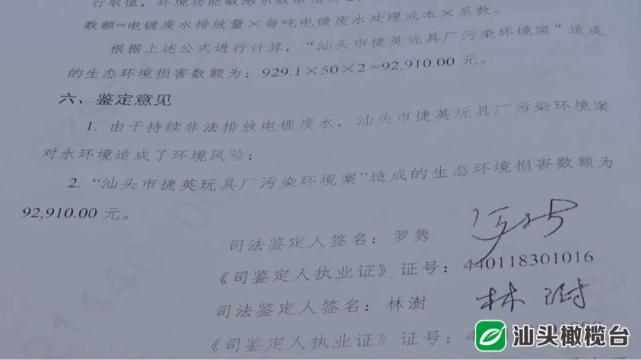 行取值，环境功能敏感系数取值为2
数额=电镀废水排放量×每吨电镀废水处理成本×系数。
根据上述公式进行计算，“汕头市捷英玩具厂污染环境案”造成
的生态环境损害数额为：929.1×50×2=92,910.00 元。
六、鉴定意见
1. 由于持续非法排放电镀废水，汕头市捷英玩具厂污染环境案
对水环境造成了环境风险；
2. “汕头市捷英玩具厂污染环境案”造成的生态环境损害数额为
92,910.00 元。
司法鉴定人签名：罗隽
《司鉴定人执业证》证号：440118301016
司法鉴定人签名：林澍 林澍
《司鉴定人执业证》证号：4
汕头橄榄台